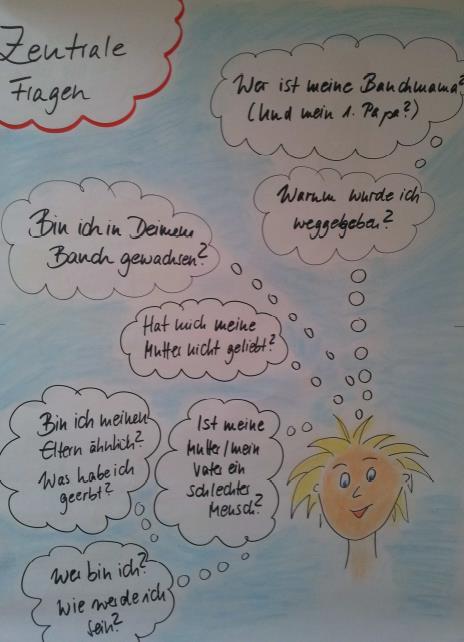 Zentrale
Fragen
Wer ist meine Bauchmama?
(Und mein 1. Papa?)
Warum wurde ich
weggegeben?
Bin ich in Deinem
Bauch gewachsen?
Hat mich meine
Mutter nicht geliebt?
Bin ich meinen
Eltern ähnlich?
Was habe ich
geerbt?
Ist meine
Mutter/mein
Vater ein
schlechter
Mensch?
Wer bin ich?
Wie werde ich
sein?